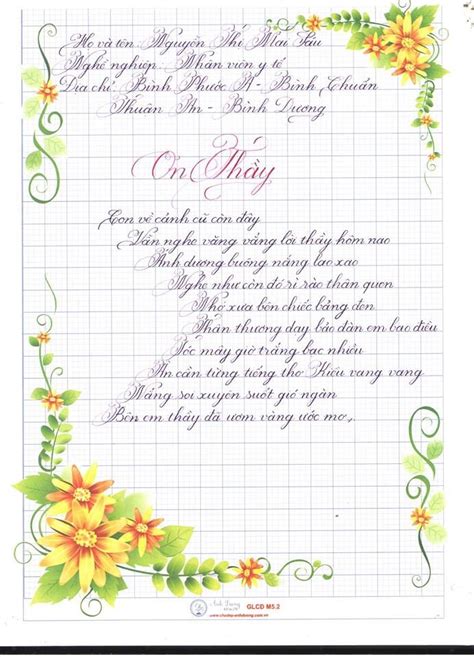 Họ và tên: Nguyễn Thị Mai Sâu
Nghề nghiệp: Nhân viên y tế
Địa chỉ: Bình Phước A - Bình Chuẩn
Thuận An - Bình Dương
Ơn Thầy
Con về cảnh cũ còn đây
Vẫn nghe văng vẳng lời thầy hôm nao
Ánh dương buông nắng lao xao
Nghe như còn đó rì rào thân quen
Nhớ xưa bên chiếc bảng đen
Thân thương dạy bảo đàn em bao điều
Tóc mây giờ trắng bạc nhiều
Ân cần từng tiếng thơ Kiều vang vang
Nắng soi xuyên suốt gió ngàn
Bên em thầy đã ươm vàng ước mơ.
GLCD M5.2